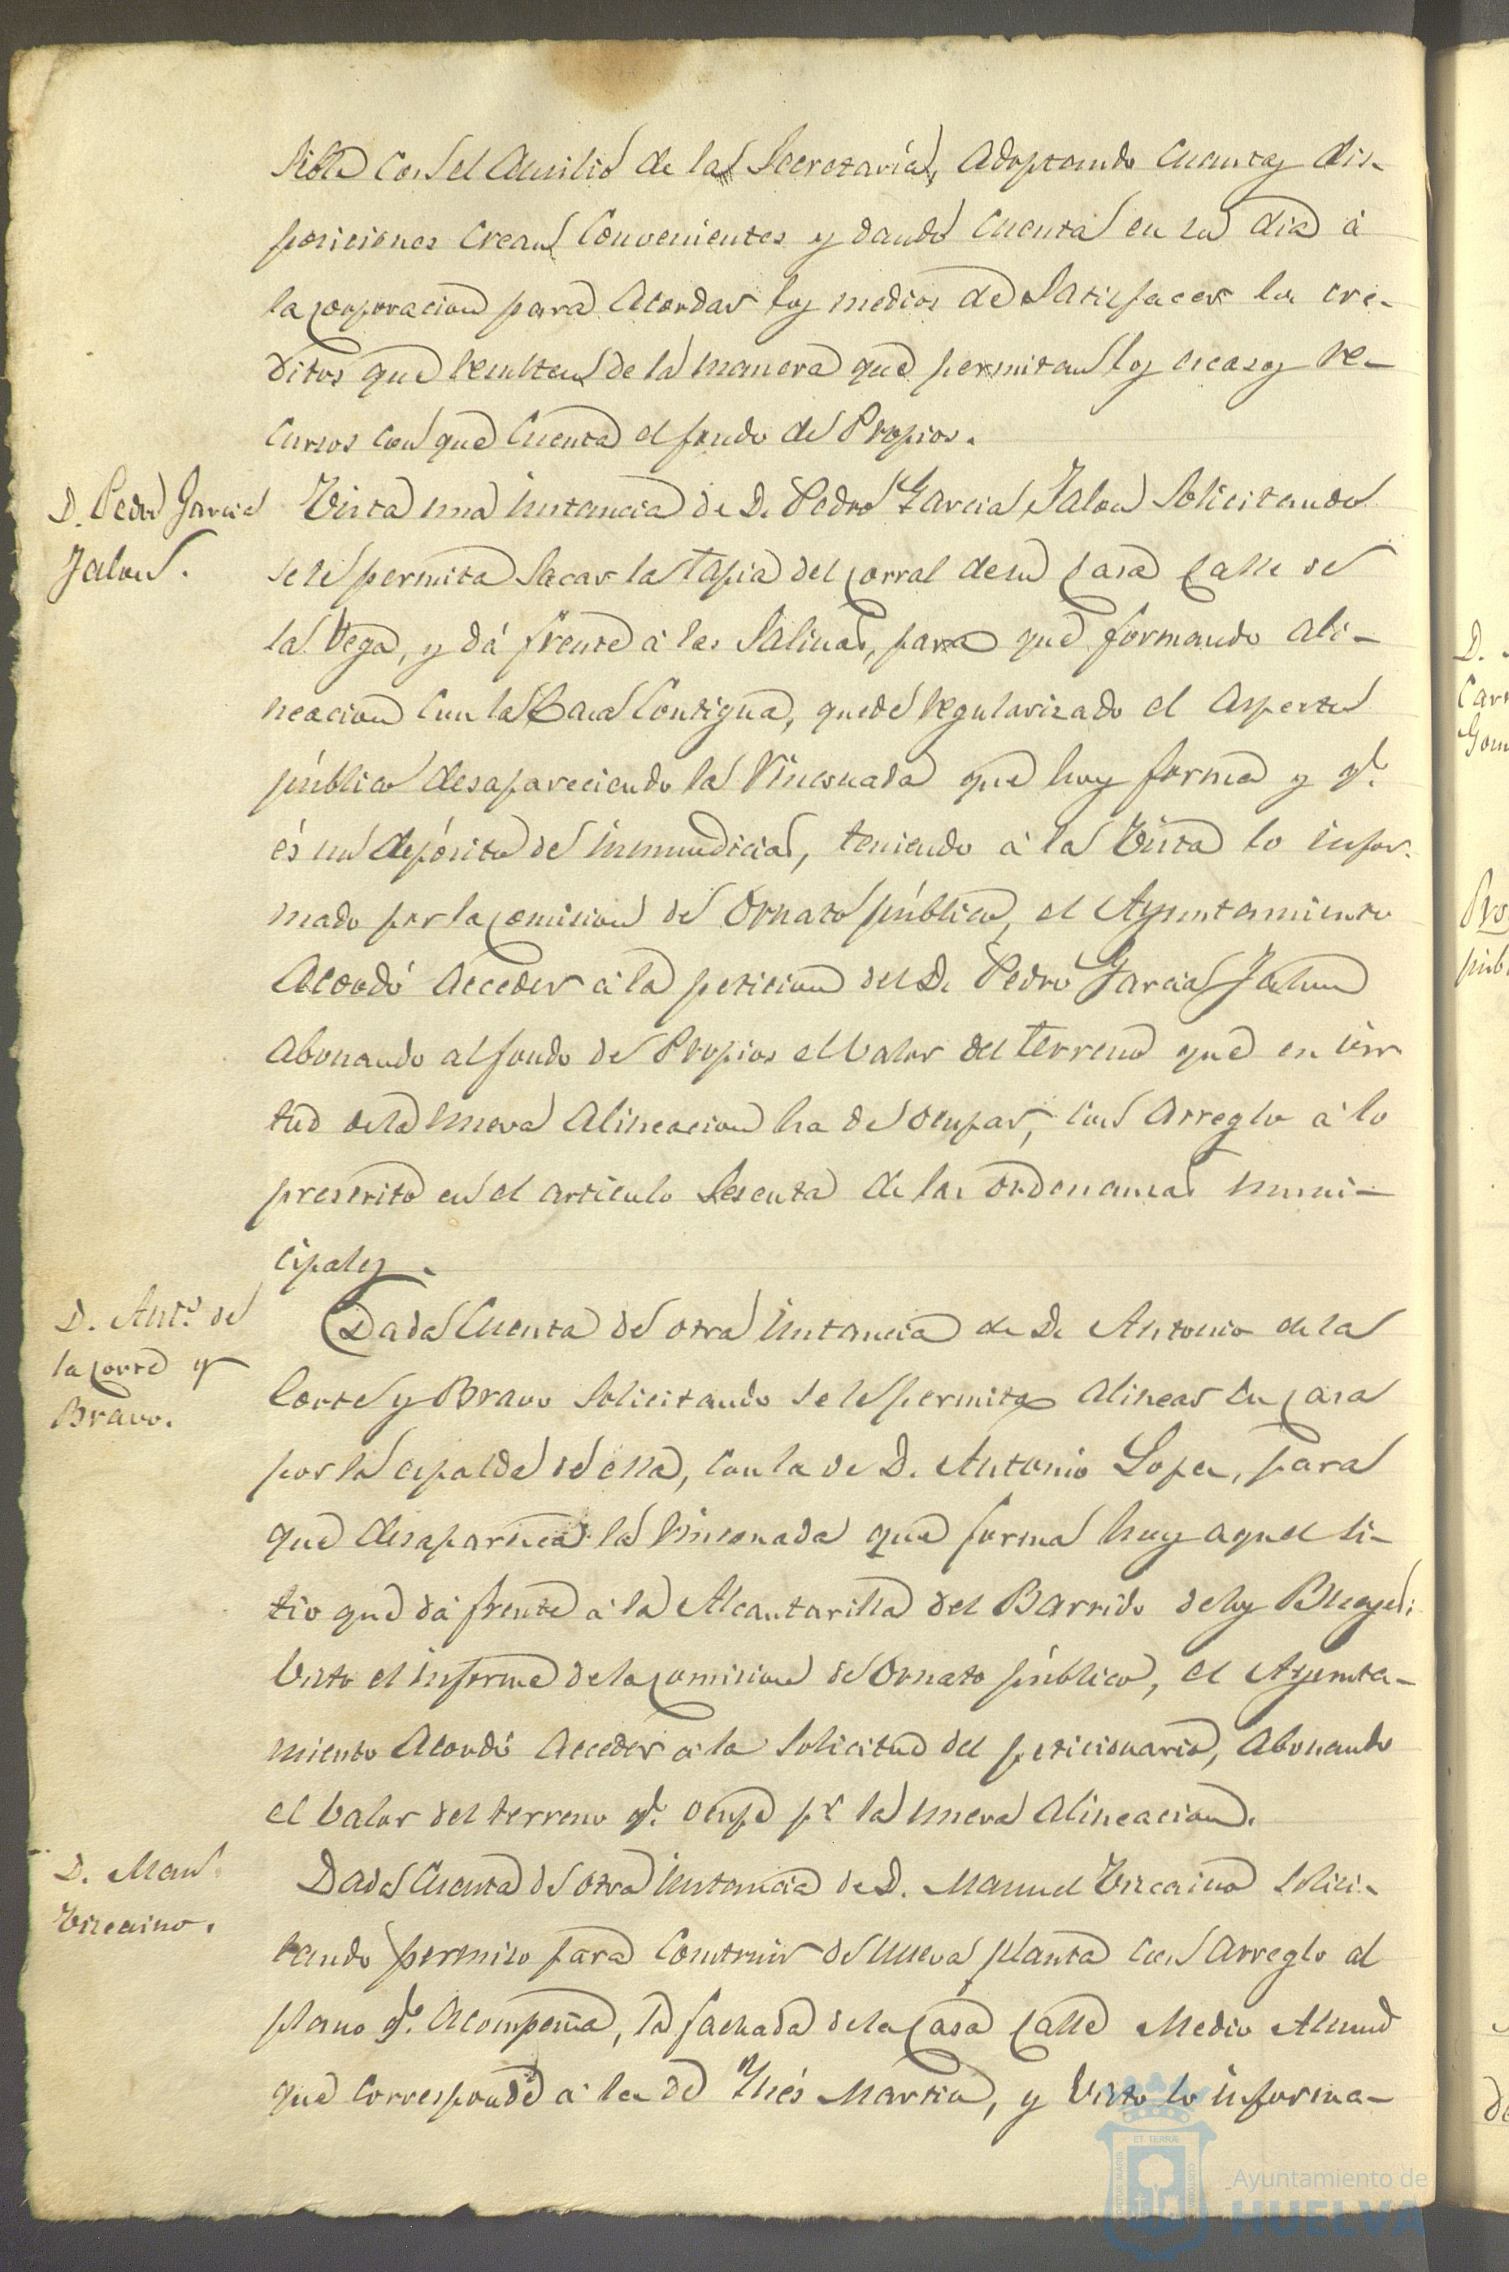 sible con el auxilio de la Secretaría, adoptando cuantas dis-
posiciones crean convenientes y dando cuenta en su dia á
la corporacion para acordar los medios de satisfacer los cre-
ditos que resulten de la manera que permitan los escasos re-
cursos con que cuenta el fondo de Propios.
D. Pedro Garcia
Jalon.
Vista una instancia de D. Pedro Garcia Jalon solicitando
se le permita sacar la tapia del corral de su casa calle de
la Vega, y dá frente á las Salinas, para que formando ali-
neacion con la casa contigua, quede regularizado el aspecto
público desapareciendo la rinconada que hoy forma y q.e
és un depósito de inmundicias, teniendo á la vista lo infor-
mado por la comision de Ornato público, el Ayuntamiento
acordó acceder á la peticion del D. Pedro Garcia Jalon
abonando al fondo de Propios el valor del terreno que en vir
tud de la nueva alineacion ha de ocupar, con arreglo á lo
prescrito en el articulo sesenta de las ordenanzas muni-
cipales.
D. Ant.o de
la Corte y
Bravo.
Dada cuenta de otra instancia de D. Antonio de la
Corte y Bravo solicitando se le permita alinear su casa
por la espalda de ella, con la de D. Antonio Lopez, para
que desaparezca la rinconada que forma hoy aquel si-
tio que dá frente á la Alcantarilla del Barrido de los
visto el informe de la comision de Ornato público, el Ayunta-
miento acordó acceder á la solicitud del peticionario, abonando
el valor del terreno q.e ocupe p.r la nueva alineacion.
D. Man.l
Vizcaino.
Dada cuenta de otra instancia de D. Manuel Vizcaino solici-
tando permiso para construir de nueva planta con arreglo al
plano q.e acompaña, la fachada de la casa calle Medio Almud
que corresponde á la de Inés Martin, y visto lo informa-
D.
Car
Gom
Pro
púb
de
Ayuntamiento de
HUELVA